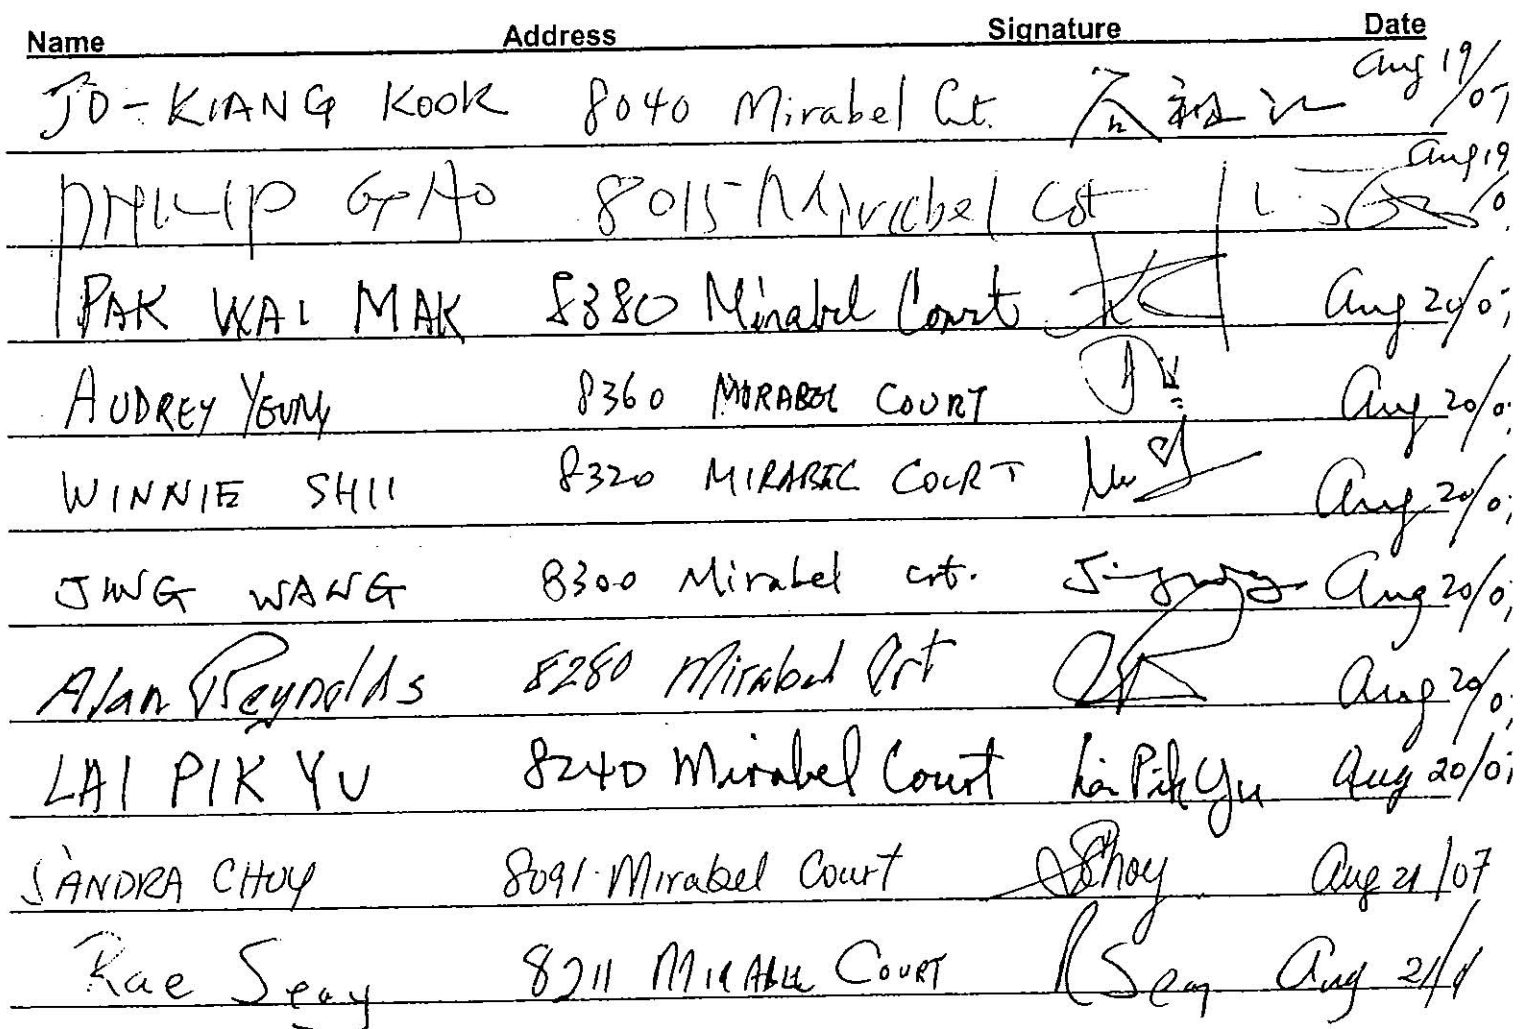 Name Address Signature Date
JO-KIANG KOOK 8040 Mirabel Crt. Aug 19/07
PHILIP GAO 8015 Mirabel Crt Aug 19
PAK WAI MAK 8380 Mirabel Court Aug 20/0
AUDREY YEUNG 8360 MIRABEL COURT Aug 20/0
WINNIE SHII 8320 MIRABEL COURT Aug 20/0
JING WANG 8300 Mirabel crt. Aug 20/0
Alan Reynolds 8280 Mirabel Crt Aug 20/0
LAI PIK YU 8240 Mirabel Court Lai Pik Yu Aug 20/0
SANDRA CHOY 8091 Mirabel Court SChoy Aug 21/07
Rae Seay 8211 MIRABLE COURT R Seay Aug 21/